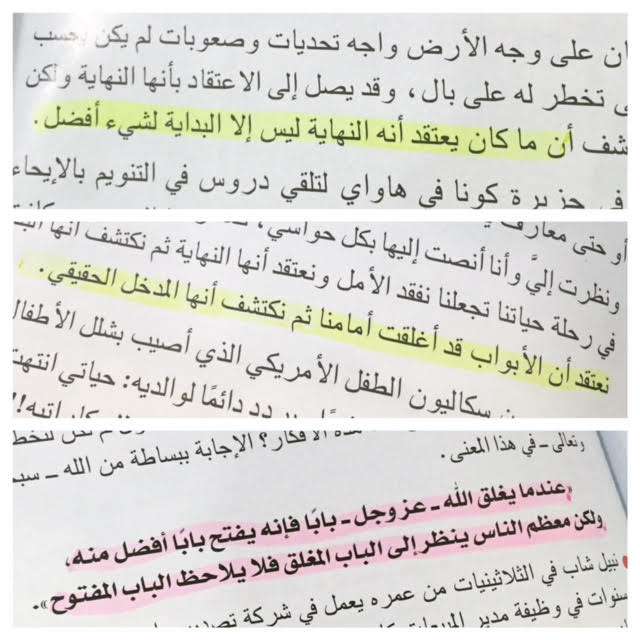 ان على وجه الأرض واجه تحديات وصعوبات لم يكن يحسب
تخطر له على بال ، وقد يصل إلى الاعتقاد بأنها النهاية ولكن
شف أن ما كان يعتقد أنه النهاية ليس إلا البداية لشيء أفضل .
في جزيرة كونا في هاواي لتلقي دروس في التنويم بالإيحاء
أو حتى معارف
ونظرت إليَّ وأنا أنصت إليها بكل حواسي،
في رحلة حياتنا تجعلنا نفقد الأمل ونعتقد أنها النهاية ثم نكتشف أنها
نعتقد أن الأبواب قد أغلقت أمامنا ثم نكتشف أنها المدخل الحقيقي.
سكاليون الطفل الأمريكي الذي أصيب بشلل الأطفال
دائمًا لوالديه: حياتي انتهت
الأفكار؟ الإجابة ببساطة من الله ـ
وتعالى ـ في هذا المعنى.
«عندما يغلق الله ـ عز وجل ـ بابًا فإنه يفتح بابًا أفضل منه،
ولكن معظم الناس ينظر إلى الباب المغلق فلا يلاحظ الباب المفتوح».
نبيل شاب في الثلاثينيات من عمره يعمل في شركة
سنوات في وظيفة مدير